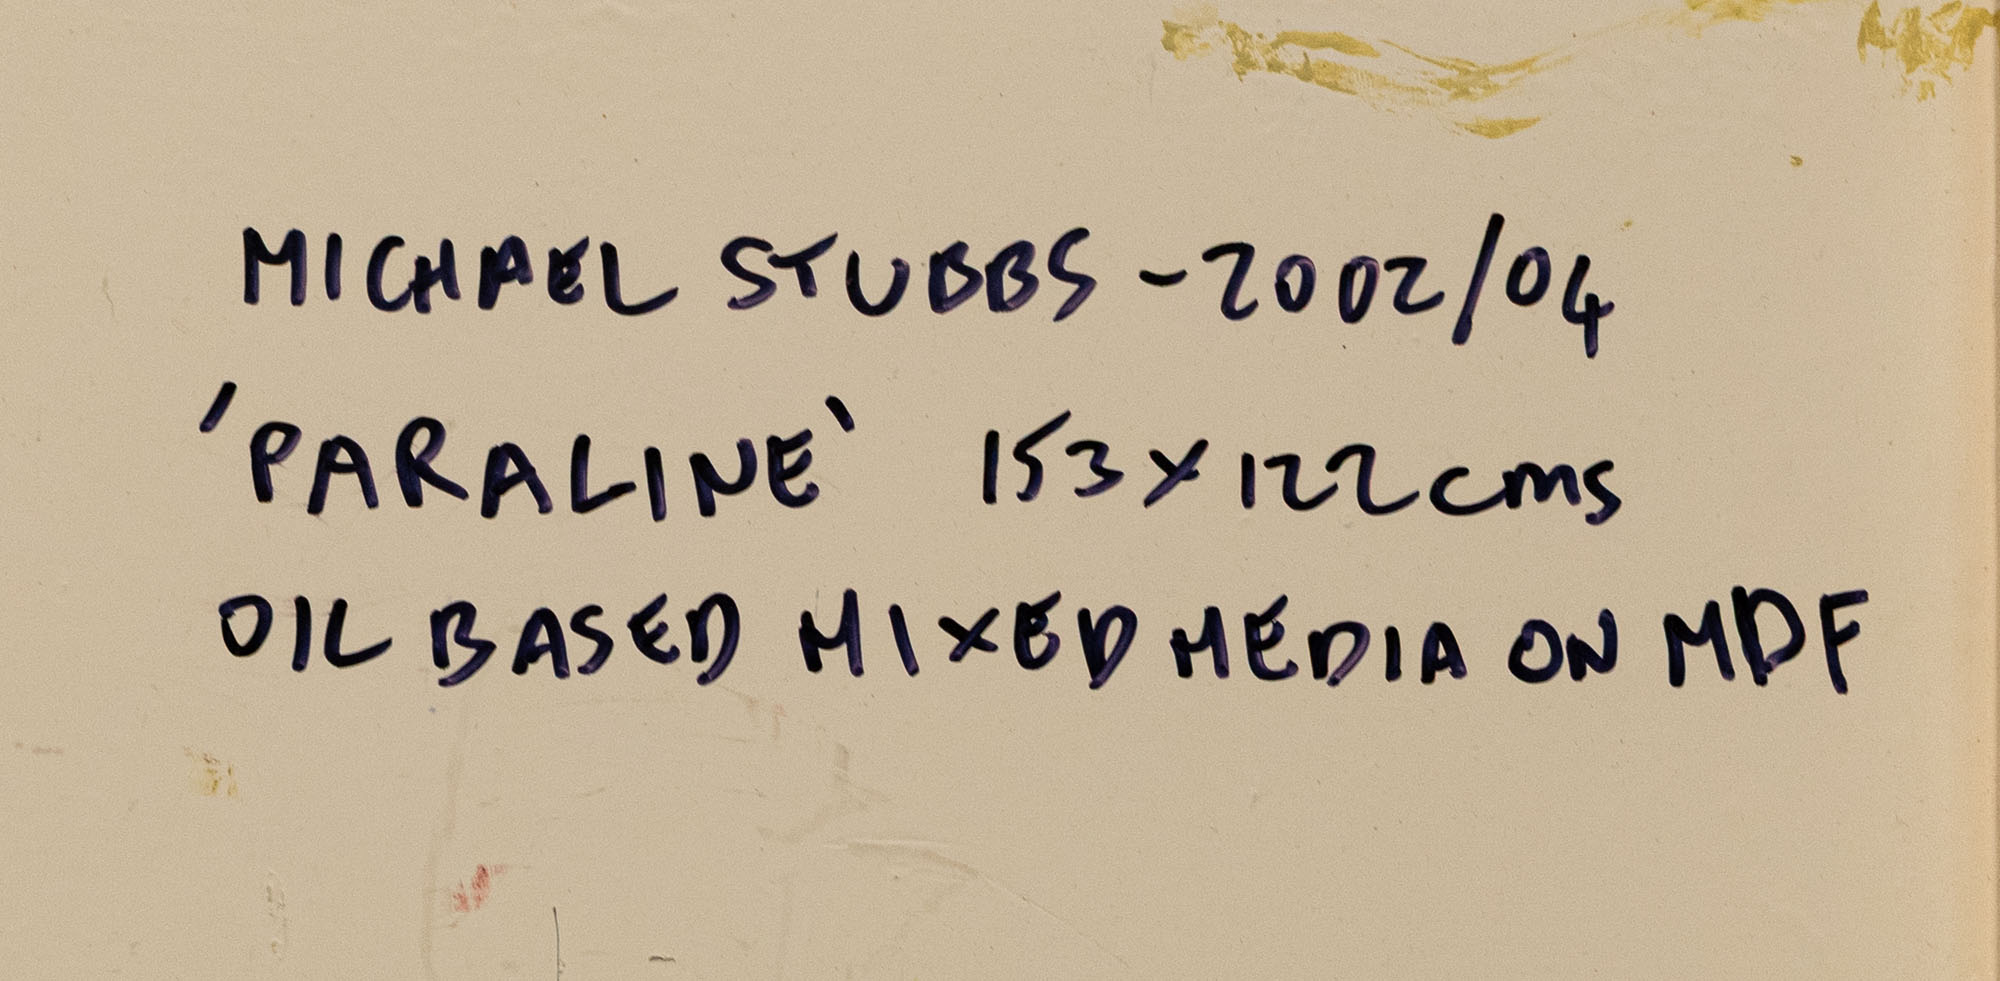 MICHAEL STUBBS - 2002/04
'PARALINE' 153 X 122 cms
OIL BASED MIXED MEDIA ON MDF